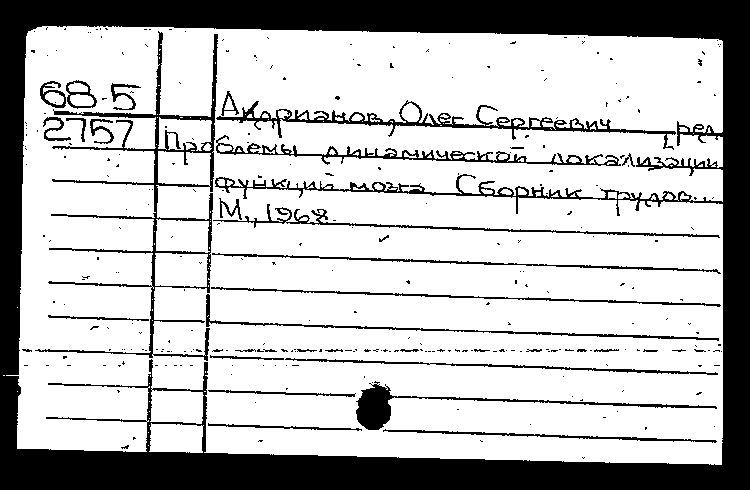 68-5
2757
Адрианов, Олег Сергеевич, ред.
Проблемы динамической локализации
функций мозга. Сборник трудов...
М., 1968.